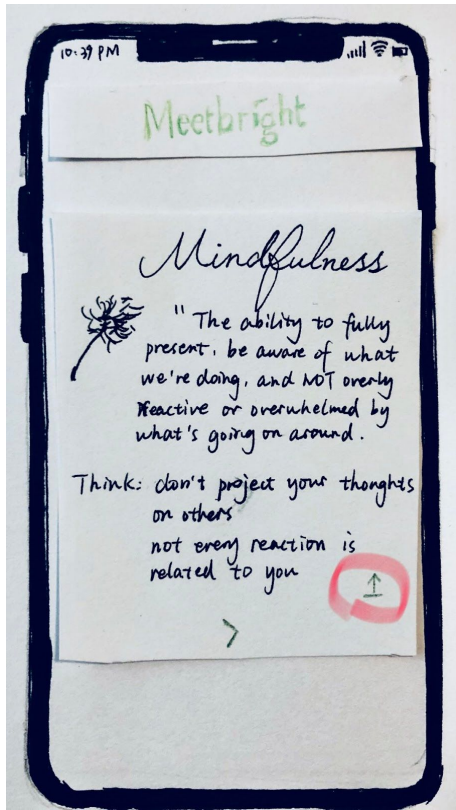 10:39 PM
Meetbright
Mindfulness
" The ability to fully
present, be aware of what
we're doing, and NOT overly
reactive or overwhelmed by
what's going on around.
Think: don't project your thonghts
on others
not every reaction is
related to you